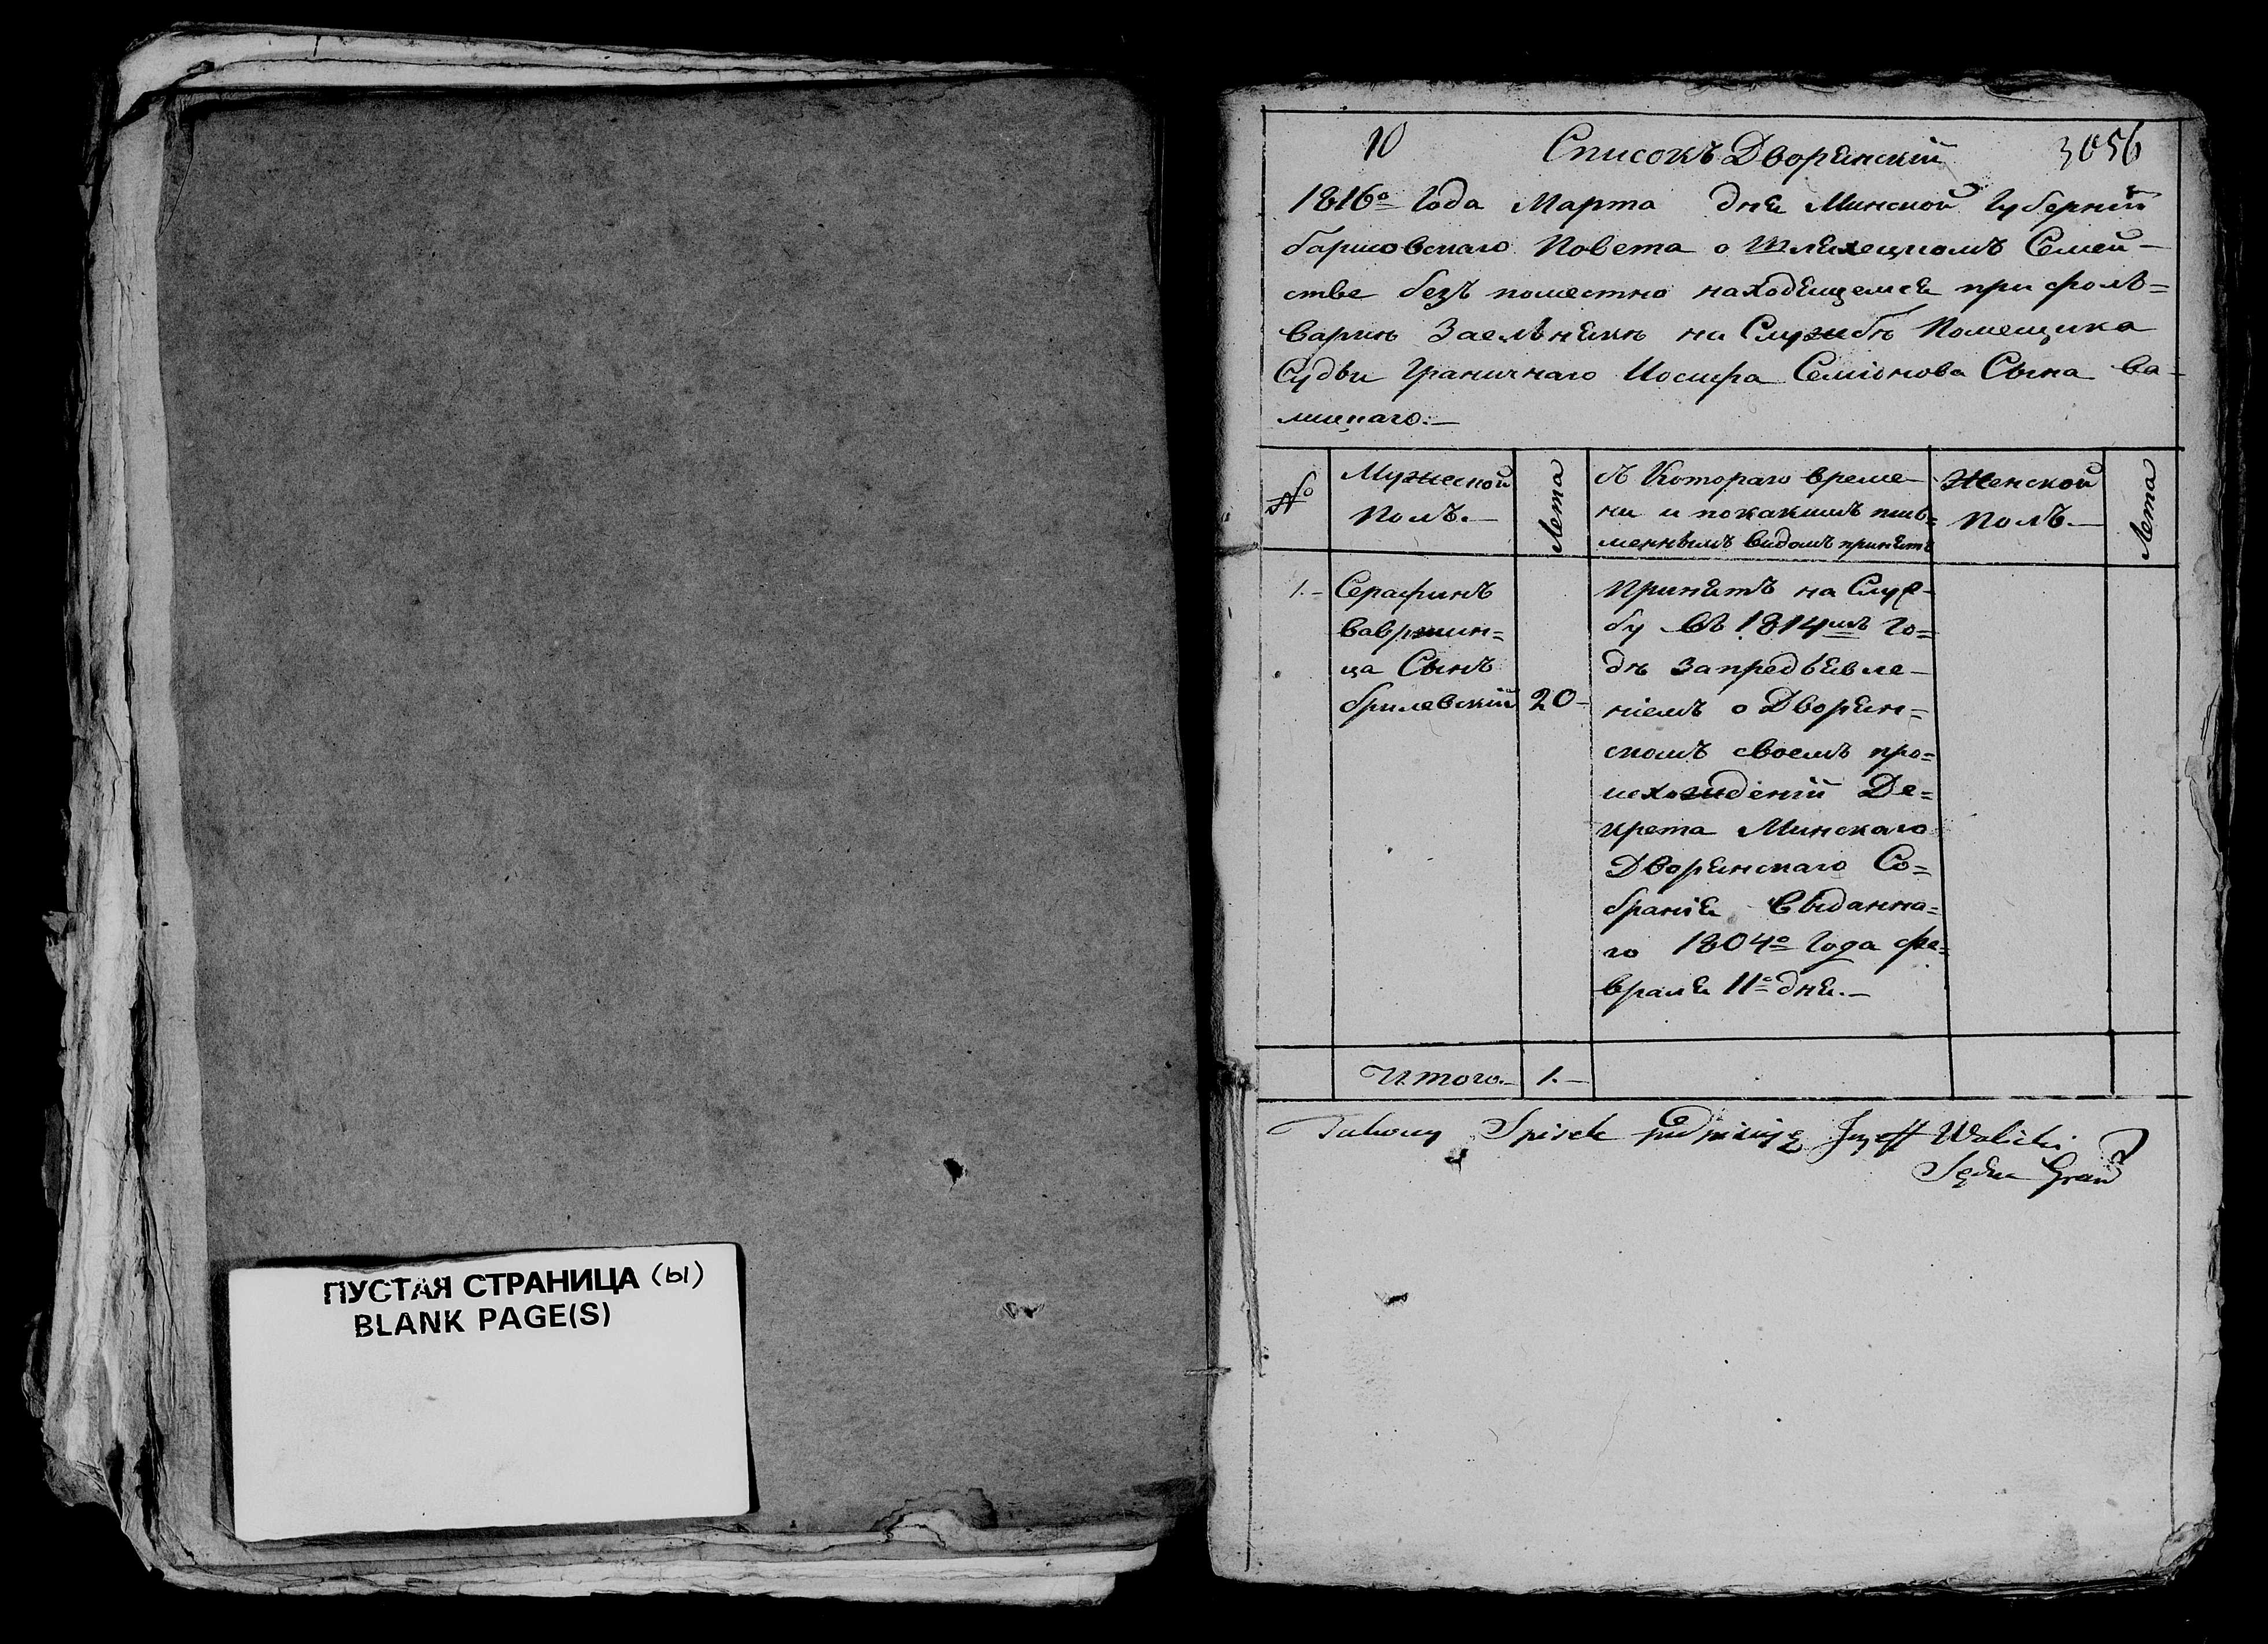 ПУСТАЯ СТРАНИЦА (ы)
BLANK PAGE(S)
10 Списокъ Дворянскій 3056
1816º Года Марта дня Минской Губерніи
борисовскаго Повета о Шляхецкомъ Семей-
стве безъ поместно находящемся при фоль=
варкѣ на Службѣ Помещика
Судьи Граничнаго Иосифа Семіонова Сына Ва-
лицкаго.—
№
Мужеской
Полъ.—
Лета
съ Котораго време-
ни и покакимъ пись=
меннымъ видомъ принятъ
Женской
Полъ.—
Лета
1.—
Серафинъ
Вавржин=
ца Сынъ
брилевский
20-
Принятъ на Служ-
бу въ 1814мъ Го=
дѣ запредъявле-
ніемъ о Дворян=
скомъ своемъ про=
исхождений Де=
крета Минскаго
Дворянскаго Со=
бранія Выданна=
го 1804º Года фе=
враля 11º дня.—
Итого.— 1.—
Takowy Spisek podpisuję Jozeff Walicki
Sędzia Gran